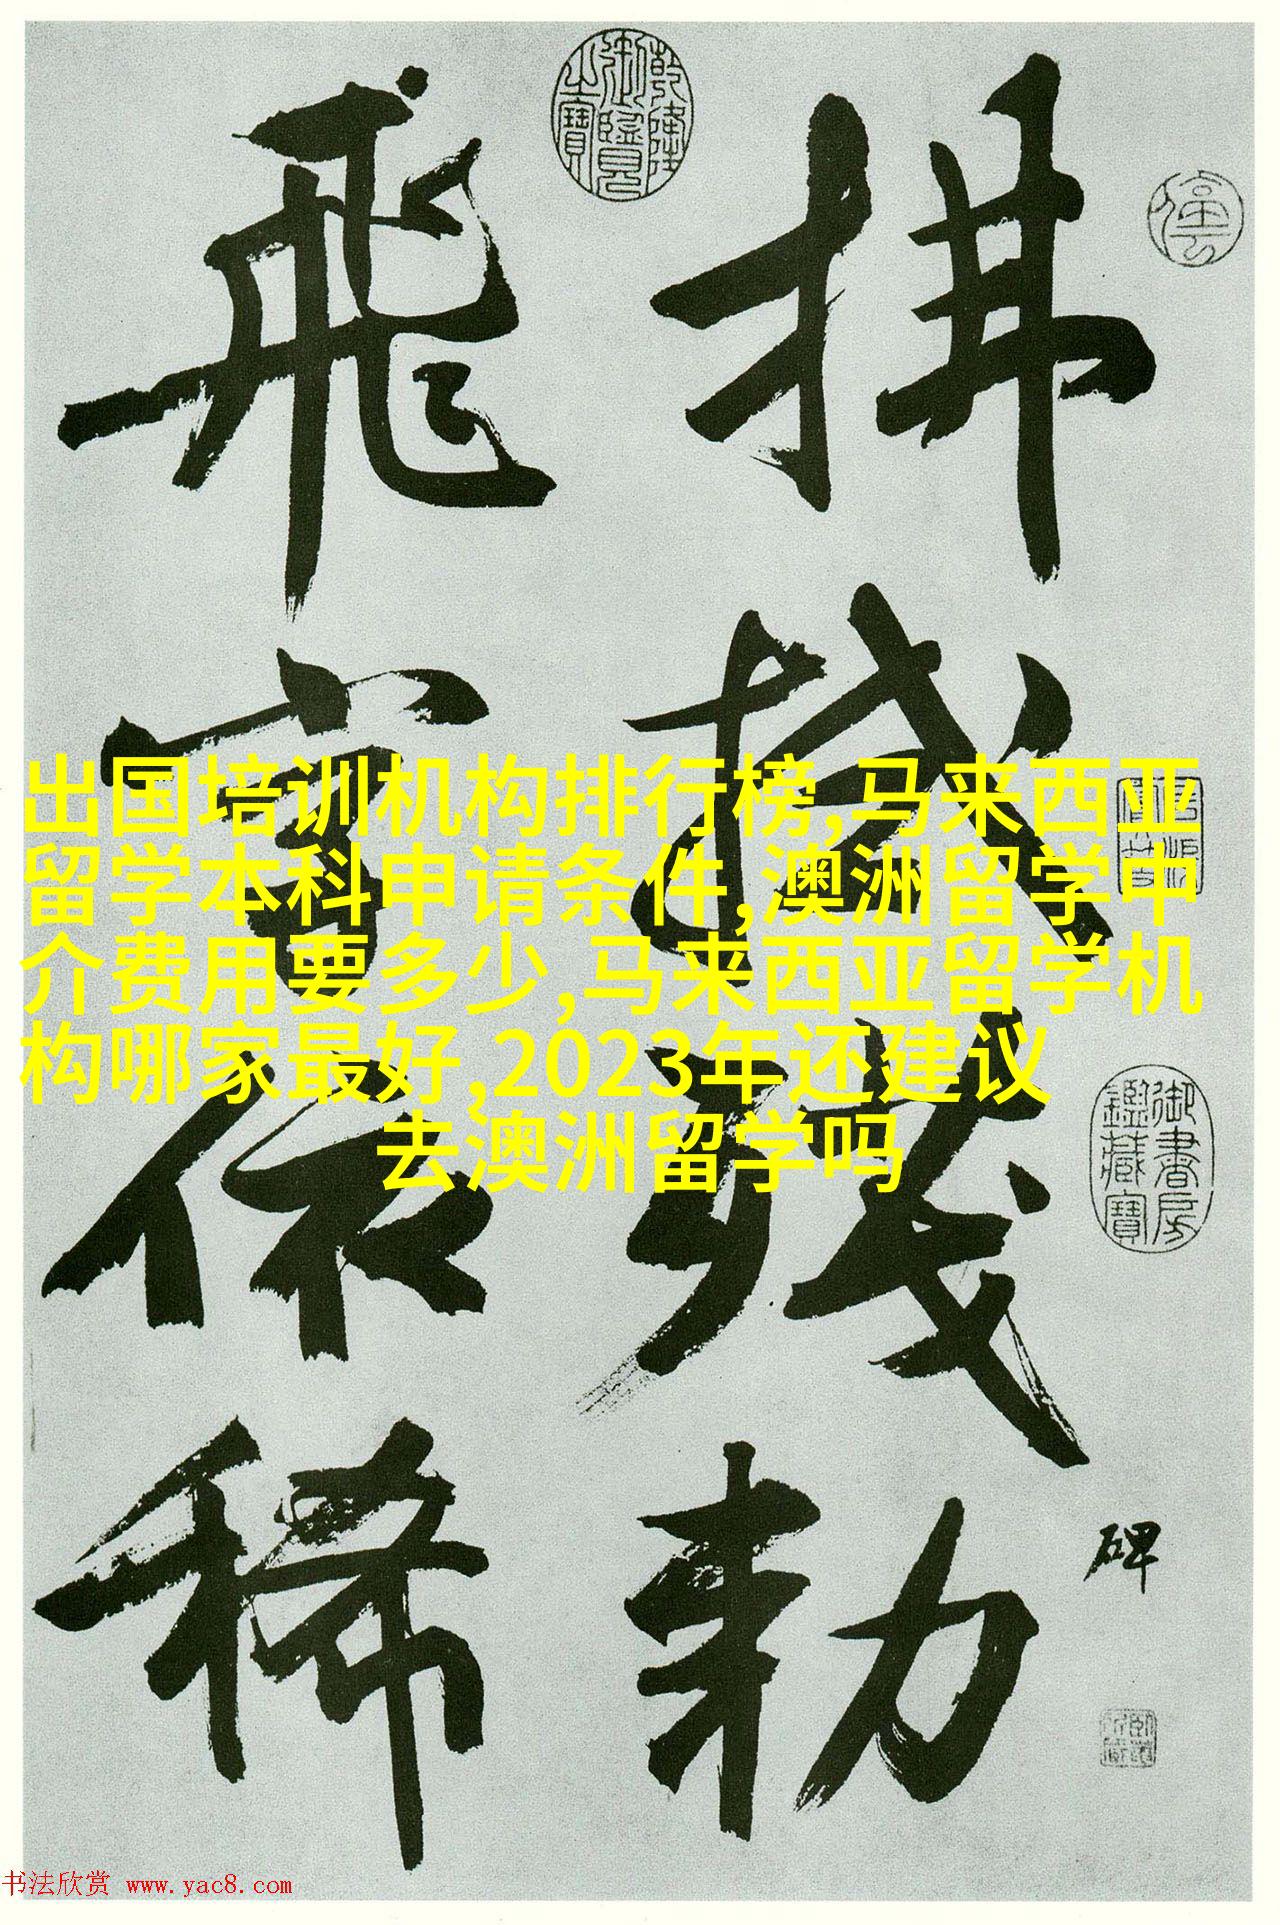 乾隆
御覽
之寶
拂拭殘勅
碑
飛字依稀
御書房
鑑藏寶
出国培训机构排行榜,马来西亚
留学本科申请条件,澳洲留学中
介费用要多少,马来西亚留学机
构哪家最好,2023年还建议
去澳洲留学吗
书法欣赏 www.yac8.com